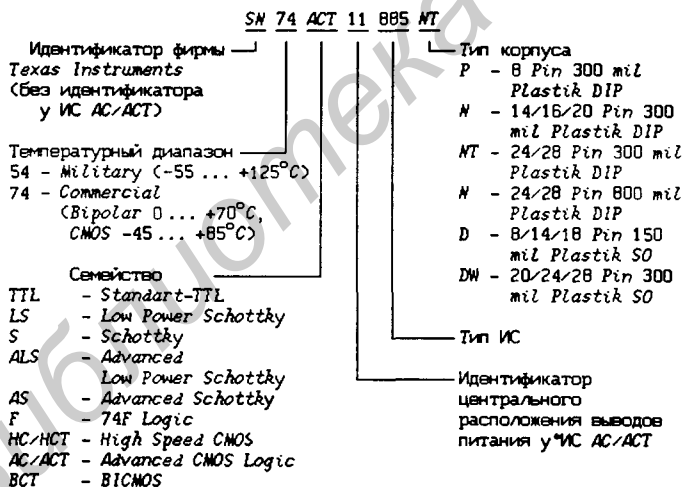 SN 74 ACT 11 885 NT
Идентификатор фирмы
Texas Instruments
(без идентификатора
у ИС AC/ACT)
Температурный диапазон
54 - Military (-55 ... +125°C)
74 - Commercial
(Bipolar 0 ... +70°C,
CMOS -45 ... +85°C)
Семейство
TTL - Standart-TTL
LS - Low Power Schottky
S - Schottky
ALS - Advanced
Low Power Schottky
AS - Advanced Schottky
F - 74F Logic
HC/HCT - High Speed CMOS
AC/ACT - Advanced CMOS Logic
BCT - BICMOS
Тип корпуса
P - 8 Pin 300 mil
Plastik DIP
N - 14/16/20 Pin 300
mil Plastik DIP
NT - 24/28 Pin 300 mil
Plastik DIP
N - 24/28 Pin 600 mil
Plastik DIP
D - 8/14/18 Pin 150
mil Plastik SO
DW - 20/24/28 Pin 300
mil Plastik SO
Тип ИС
Идентификатор
центрального
расположения выводов
питания у ИС AC/ACT